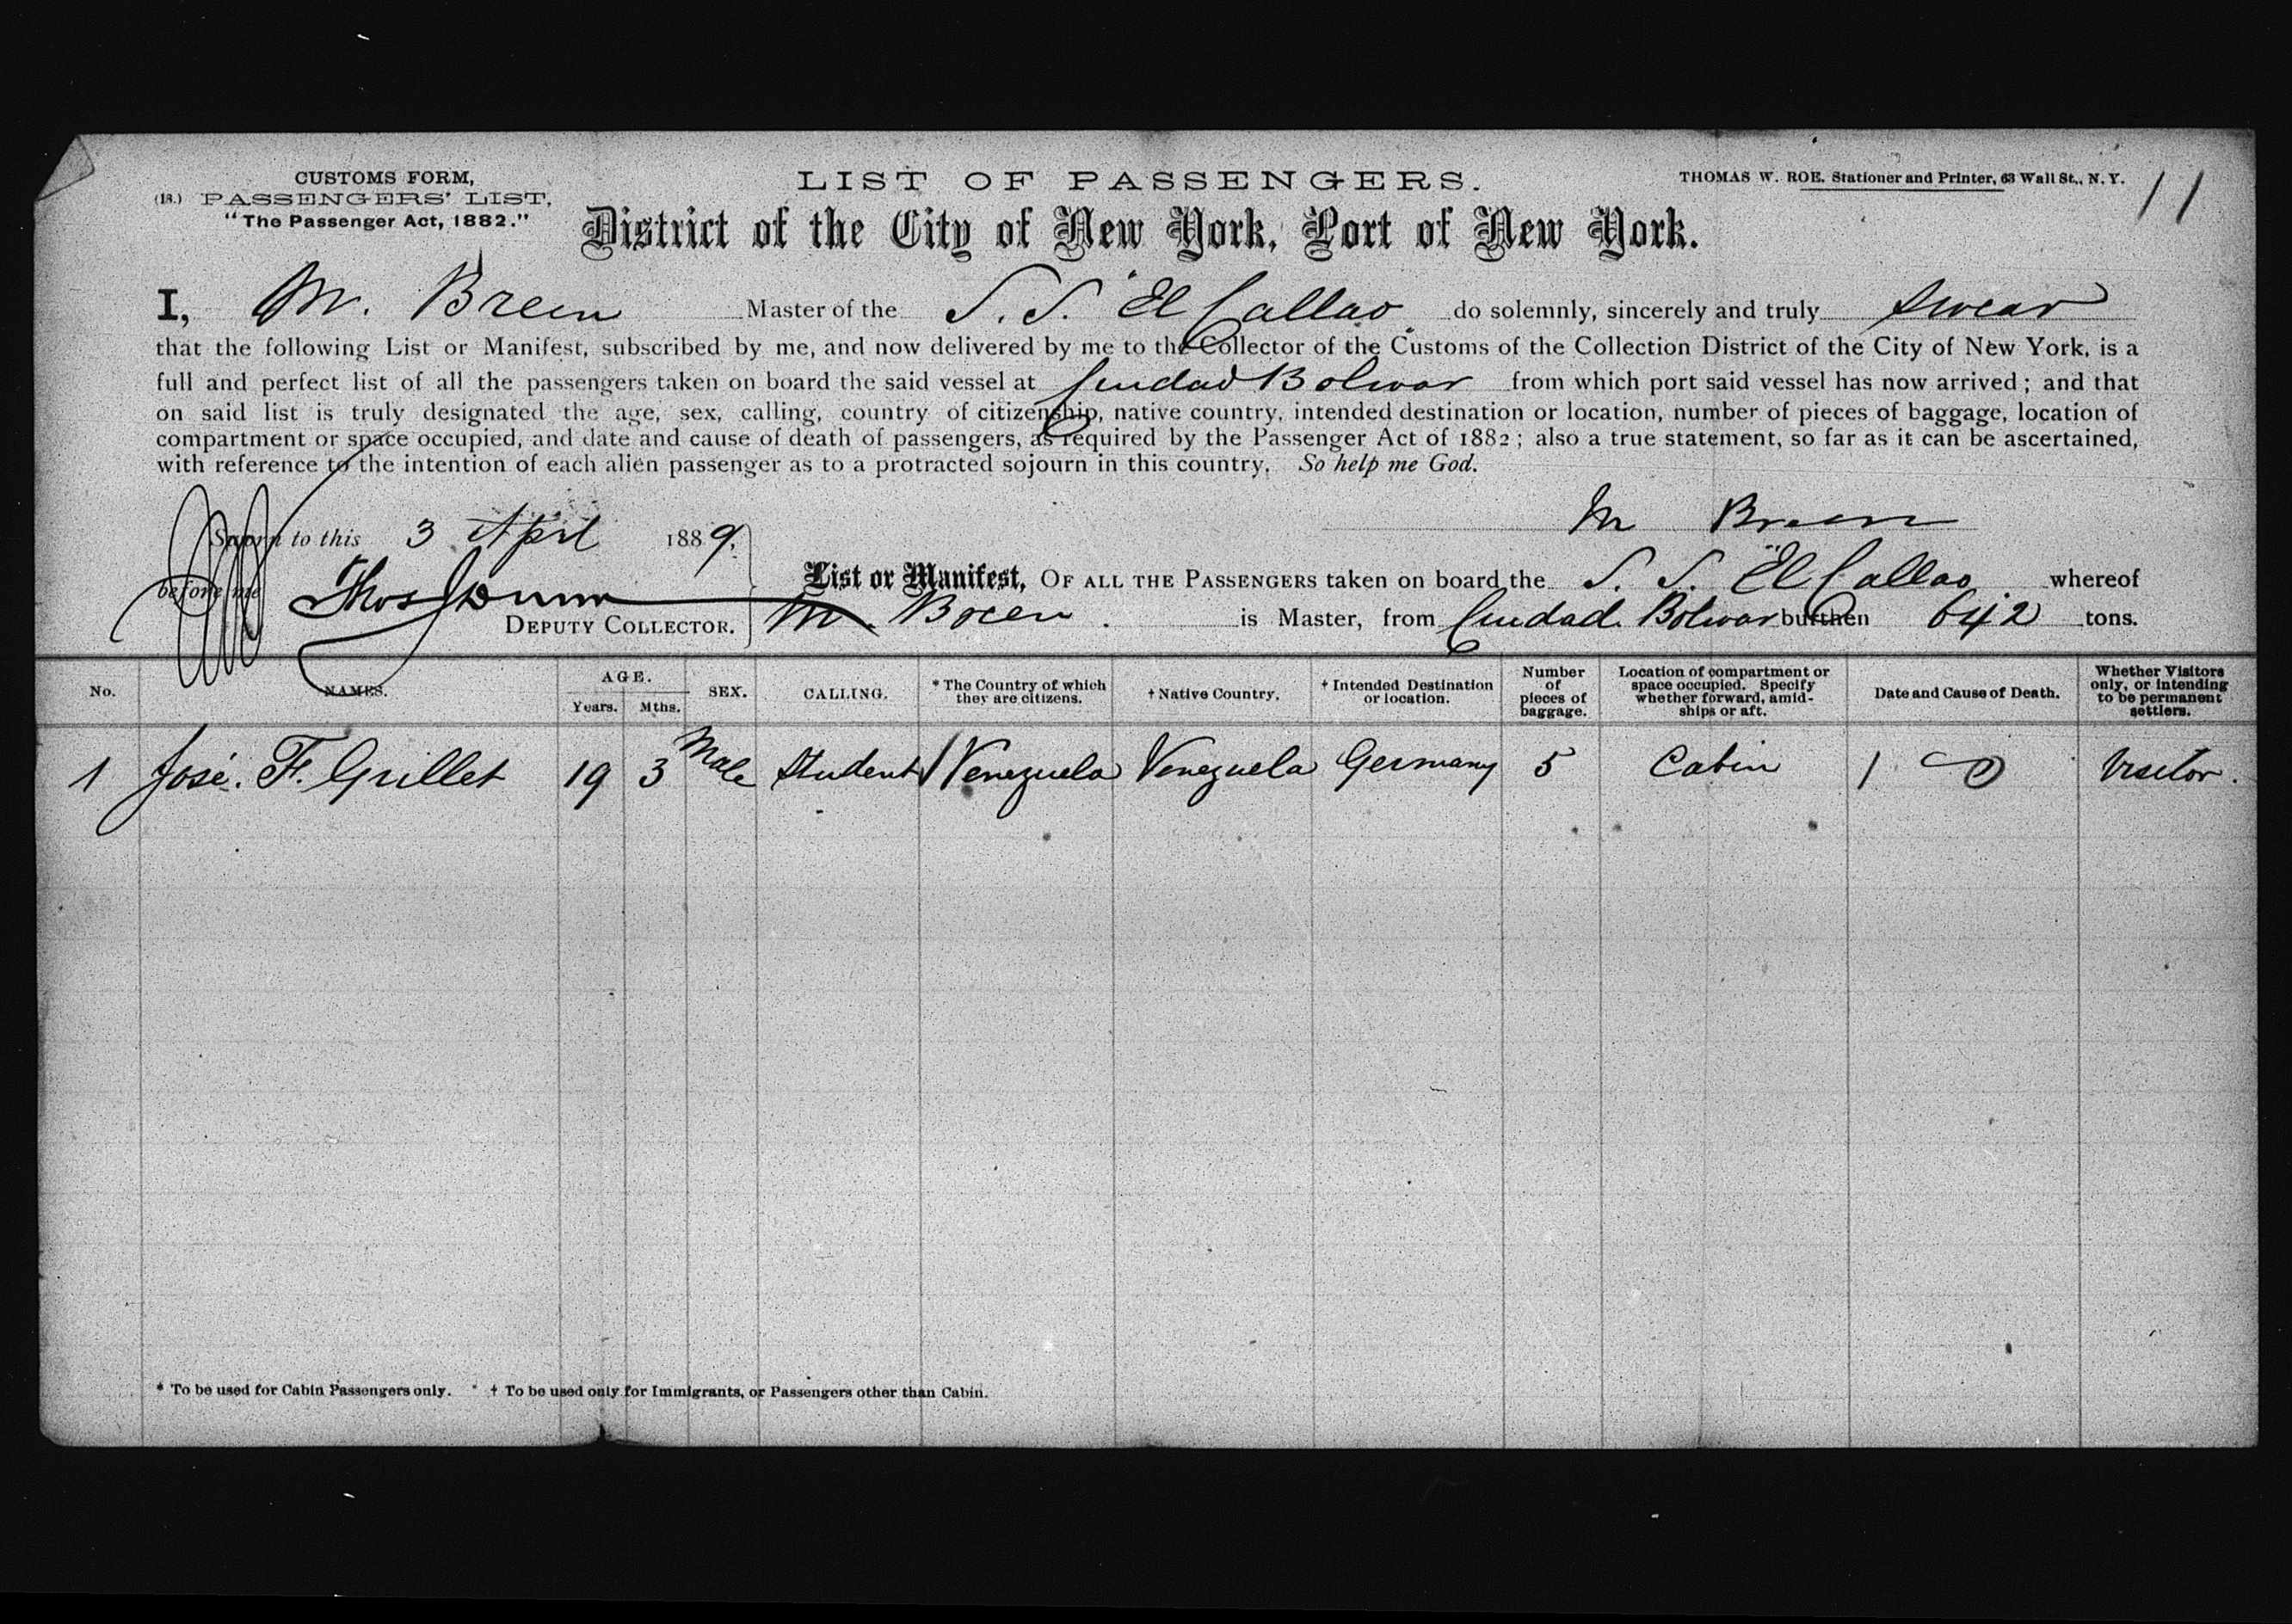 CUSTOMS FORM,
(18.) PASSENGERS' LIST,
"The Passenger Act, 1882."
LIST OF PASSENGERS.
THOMAS W. ROE. Stationer and Printer, 63 Wall St., N. Y.
11
District of the City of New York, Port of New York.
I, M. Breen Master of the S. S. "El Callao do solemnly, sincerely and truly swear
that the following List or Manifest, subscribed by me, and now delivered by me to the Collector of the Customs of the Collection District of the City of New York, is a
full and perfect list of all the passengers taken on board the said vessel at Ciudad Bolivar from which port said vessel has now arrived; and that
on said list is truly designated the age, sex, calling, country of citizenship, native country, intended destination or location, number of pieces of baggage, location of
compartment or space occupied, and date and cause of death of passengers, as required by the Passenger Act of 1882; also a true statement, so far as it can be ascertained,
with reference to the intention of each alien passenger as to a protracted sojourn in this country. So help me God.
M Breen
Sworn to this 3 April 1889,
before me Thos Dunn
DEPUTY COLLECTOR.
List or Manifest, OF ALL THE PASSENGERS taken on board the S. S. "El Callao whereof
M. Breen. is Master, from Ciudad. Bolivar burthen 642 tons.
No. NAMES. AGE. Years. Mths. SEX. CALLING. * The Country of which they are citizens. † Native Country. † Intended Destination or location. Number of pieces of baggage. Location of compartment or space occupied. Specify whether forward, amid-ships or aft. Date and Cause of Death. Whether Visitors only, or intending to be permanent settlers.
1 José. F. Grillet 19 3 Male Student Venezuela Venezuela Germany 5 Cabin Visitor.
* To be used for Cabin Passengers only. † To be used only for Immigrants, or Passengers other than Cabin.